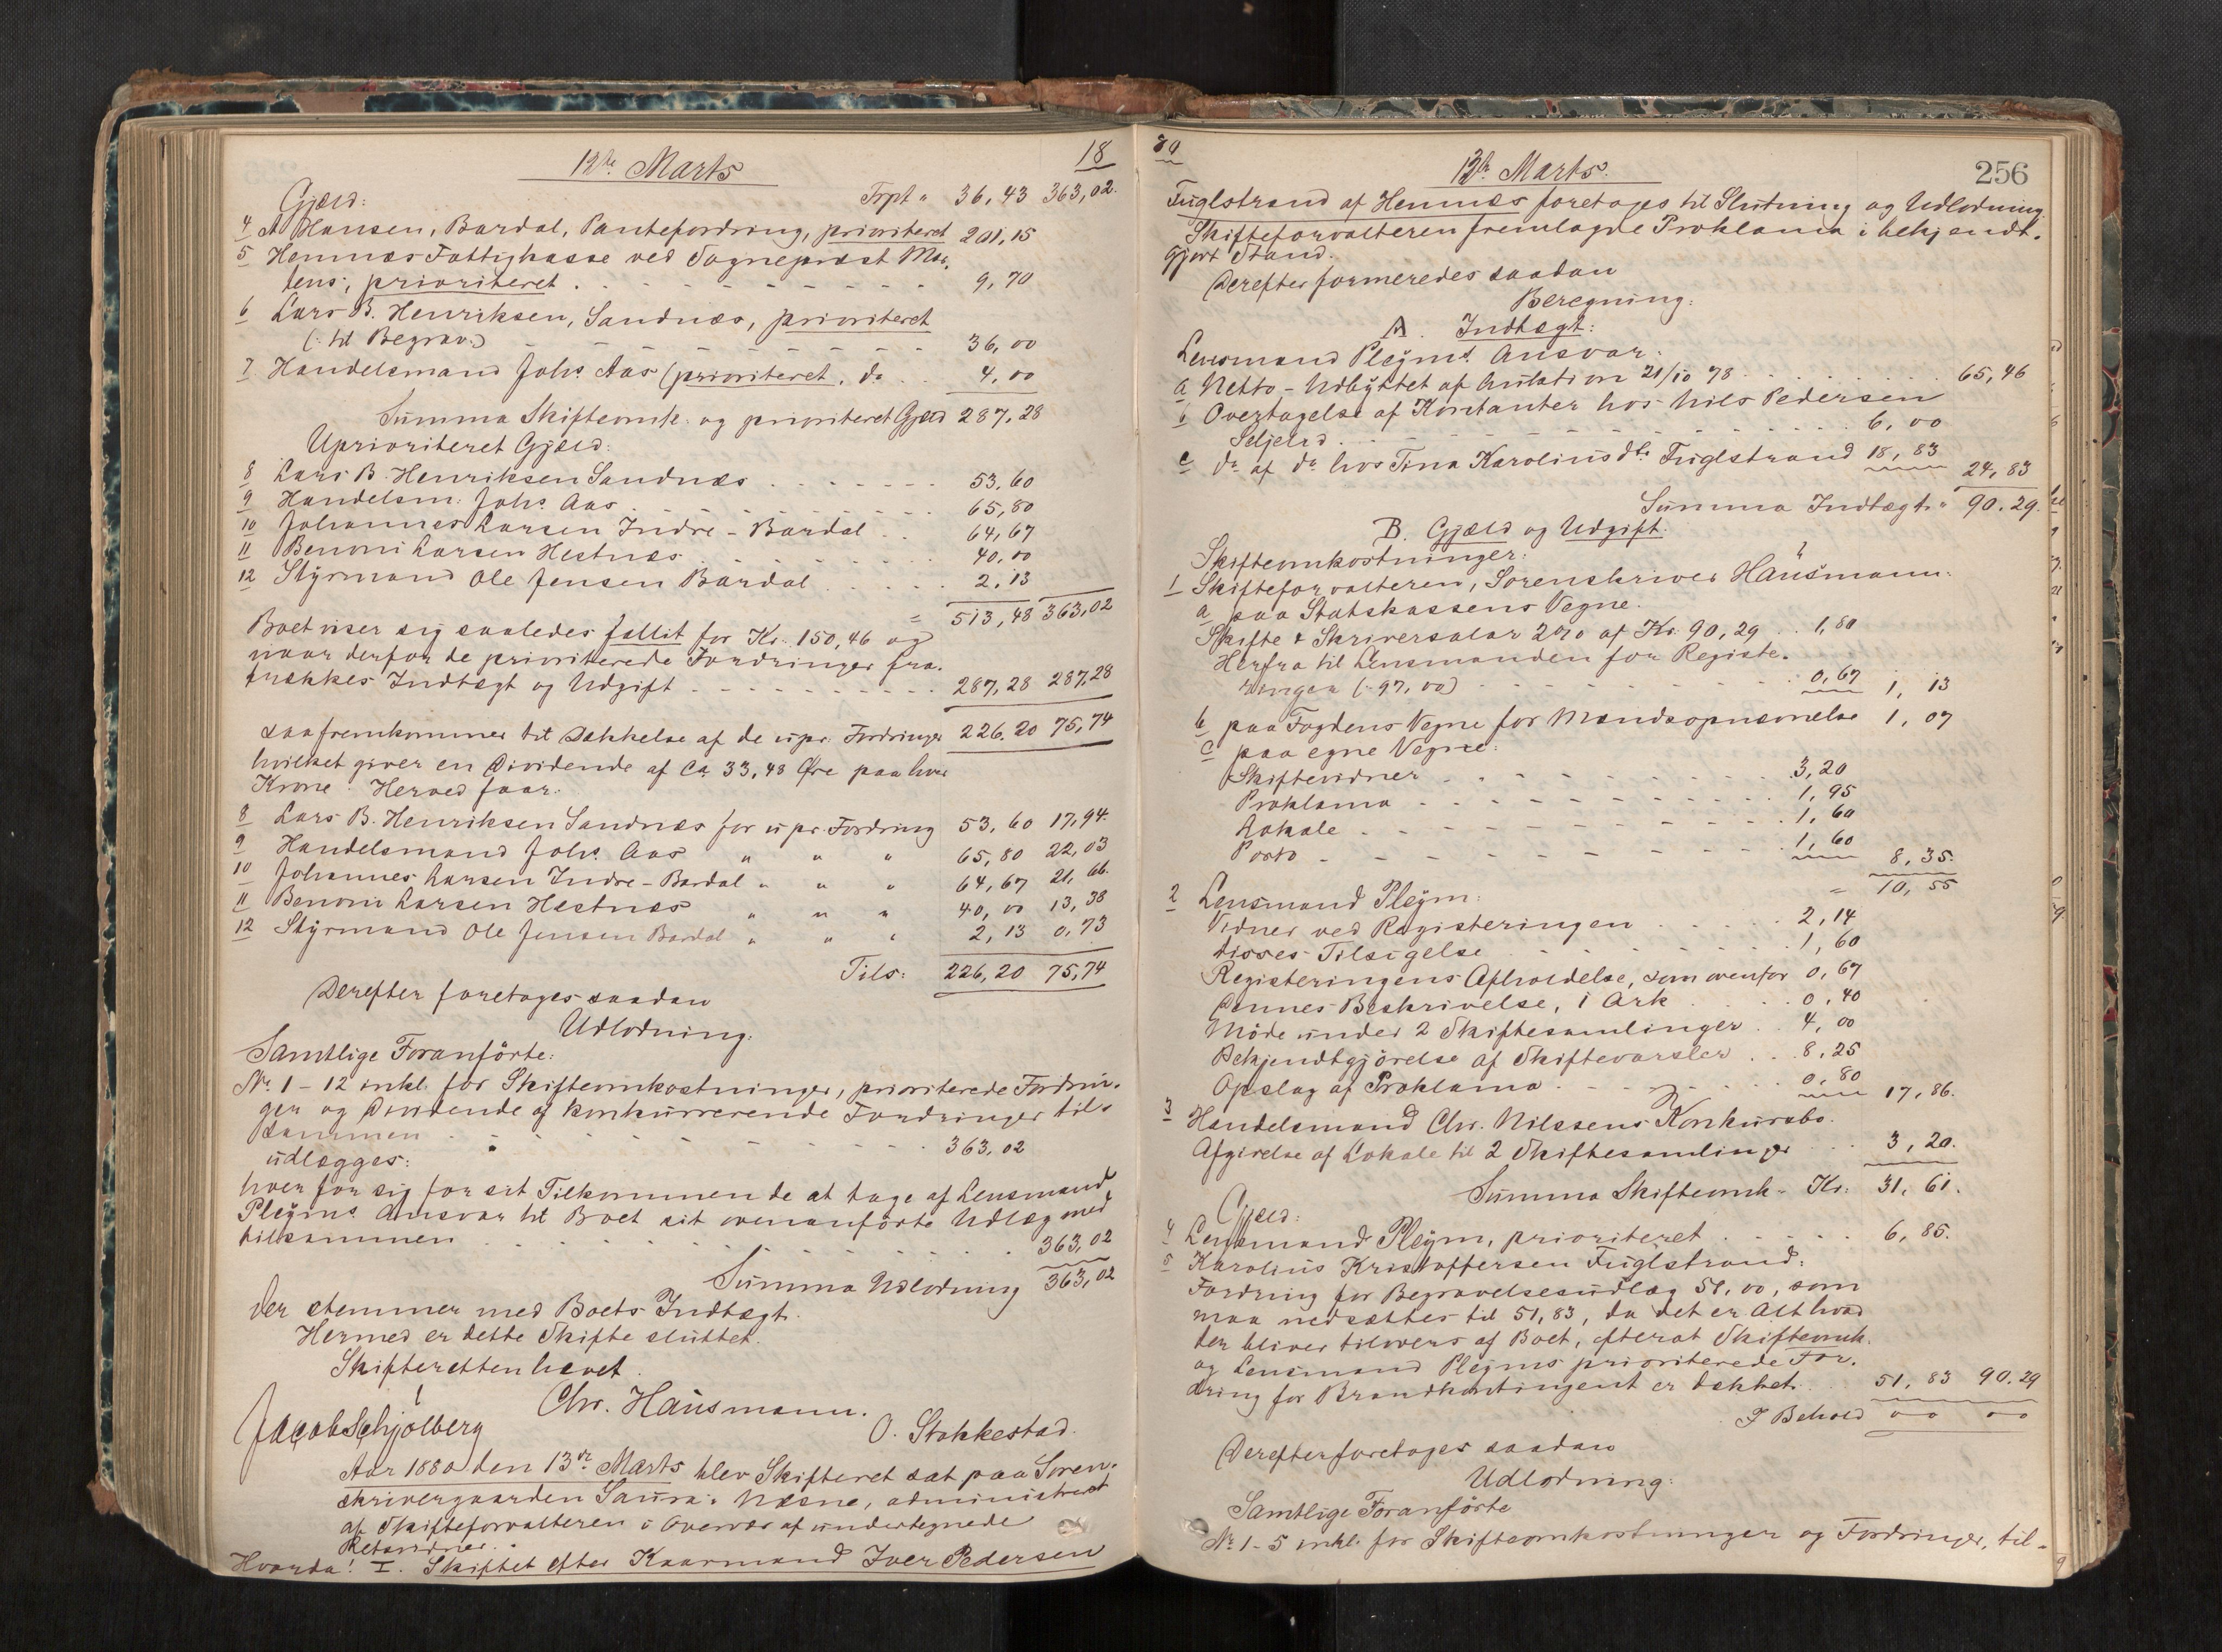 12te Marts
18
Gjæld: Trpt " 36,43 363,02.
4 A Hansen, Bardal, Pantefordring, prioriteret 201,15
5 Hemnæs Fattigkasse ved Sogneprest Mar-
tens, prioriteret 9,70
6 Lars B. Henriksen, Sandnæs, prioriteret
(: til Begrav:) 36,00
7 Handelsmand Johs Aas (prioriteret, do 4,00
Summa Skifteomk: og prioriteret Gjæld 287,28
Uprioriteret Gjæld:
8 Lars B. Henriksen Sandnæs 53,60
9 Handelsm: Johs Aas 65,80
10 Johannes Larsen Indre-Bardal 64,67
11 Benoni Larsen Hestnæs 40,00
12 Styrmand Ole Jensen Bardal 2,13
= 513,48 363,02
Boet viser sig saaledes fallit for Kr. 150,46 og
naar derfor de prioriterede Fordringer fra-
trækkes Indtægt og Udgift 287,28 287,28
saa fremkommer til Dækkelse af de upr. Fordringer 226,20 75,74
hvilket giver en Dividende af Ca 33,48 Øre paa hver
Krone. Herved faar:
8 Lars B. Henriksen Sandnæs for upr. Fordring 53,60 17,94.
9 Handelsmand Johs Aas " " " 65,80 22,03
10 Johannes Larsen Indre-Bardal " " " 64,67 21,66.
11 Benoni Larsen Hestnæs " " " 40,00 13,38
12 Styrmand Ole Jensen Bardal " " " 2,13 0,73
Tils: 226,20 75,74
Derefter foretages saadan
Udlodning.
Samtlige Foranførte:
No 1-12 inkl. for Skifteomkostninger, prioriterede Fordrin-
ger og Dividende af konkurrerende Fordringer til-
sammen 363,02
udlægges:
hver for sig for sit Tilkommende at tage af Lensmand
Pleyms Ansvar til Boet sit ovenanførte Udlæg med
tilsammen 363,02
Summa Udlodning 363,02
der stemmer med Boets Indtægt.
Hermed er dette Skifte sluttet.
Skifteretten hævet.
Chr. Hausmann.
Jacob Schjölberg O. Stokkestad.
Aar 1880 den 13de Marts blev Skifteret sat paa Soren-
skrivergaarden Saura i Næsne, administreret
af Skifteforvalteren i Overvær af undertegnede
Retsvidner.
Hvorda! I. Skiftet efter Kaarmand Iver Pedersen
80
13de Marts.
256
Fuglstrand af Hemnæs foretages til Slutning og Udlodning.
Skifteforvalteren fremlagde Proklama i bekjendt-
gjort Stand.
Derefter formeredes saadan
Beregning:
A. Indtægt:
Lensmand Pleyms Ansvar:
a Netto-Udbyttet af Auktion 21/10 78 65,46
b Overtagelse af Kontanter hos Nils Pedersen
Seljelid 6,00
c do af do hos Tina Karoliusdtr Fuglstrand 18,83 24,83
Summa Indtægt " 90.29.
B. Gjæld og Udgift.
Skifteomkostninger:
1 Skifteforvalteren, Sorenskriver Hausmann:
a paa Statskassens Vegne.
Skifte & Skriversalær 2% af Kr. 90,29 1,80
Herfra til Lensmanden for Registe-
ringen (:97,00) 0,67 1,13
b paa Fogdens Vegne for Mandsopnævnelse 1,07
c paa egne Vegne:
Skiftevidner 3,20
Proklama 1,95
Lokale 1,60
Porto 1,60 8,35.
= 10,55
2 Lensmand Pleym:
Vidner ved Registeringen 2,14
disses Tilsigelse 1,60
Registeringens Afholdelse, som ovenfor 0,67
Dennes Beskrivelse, 1 Ark 0,40
Møde under 2 Skiftesamlinger 4,00
Bekjendtgjørelse af Skiftevarsler 8,25
Opslag af Proklama 0,80 17,86.
3 Handelsmand Chr. Nilssens Konkursbo.
Afgivelse af Lokale til 2 Skiftesamlinger 3,20.
Summa Skifteomk. Kr. 31,61.
Gjæld:
4 Lensmand Pleym, prioriteret 6,85.
5 Karolius Kristoffersen Fuglstrand:
Fordring for Begravelsesudlæg 51,00, som
maa nedsættes til 51,83, da det er Alt hvad
der bliver tilovers af Boet, efterat Skifteomk.
og Lensmand Pleyms prioriterede For-
dring for Brandkontingent er dækket. 51,83 90.29
I Behold 00 00
Derefter foretages saadan
Udlodning:
Samtlige Foranførte
No 1-5 inkl. for Skifteomkostninger og Fordringer, til-